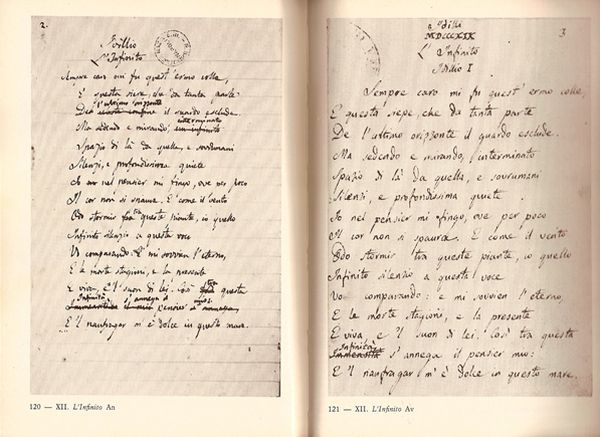 2.
Idillio
L'Infinito
Sempre caro mi fu quest'ermo colle,
E questa siepe, che da tanta parte
l'ultimo orizzonte
Del il guardo esclude.
interminato
Ma sedendo e mirando,
Spazio di là da quella, e sovrumani
Silenzi, e profondissima quiete
Io nel pensier mi fingo, ove per poco
Il cor non si spaura. E come il vento
Odo stormir tra queste piante, io quello
Infinito silenzio a questa voce
Vo comparando. E mi sovvien l'eterno,
E le morte stagioni, e la presente
E viva, e 'l suon di lei. Così tra questa
Infinità s'annega il mio:
pensier
E 'l naufragar m'è dolce in questo mare.
120 — XII. L'Infinito An
3
Idilli
MDCCCXIX
L'Infinito
Idilio I
Sempre caro mi fu quest'ermo colle,
E questa siepe, che da tanta parte
De l'ultimo orizzonte il guardo esclude.
Ma sedendo e mirando, interminato
Spazio di là da quella, e sovrumani
Silenzi, e profondissima quiete
Io nel pensier mi fingo, ove per poco
Il cor non si spaura. E come il vento
Odo stormir tra queste piante, io quello
Infinito silenzio a questa voce
Vo comparando: e mi sovvien l'eterno,
E le morte stagioni, e la presente
E viva, e 'l suon di lei. Così tra questa
Infinità
Immensità s'annega il pensier mio:
E 'l naufragar m'è dolce in questo mare.
121 — XII. L'Infinito Av